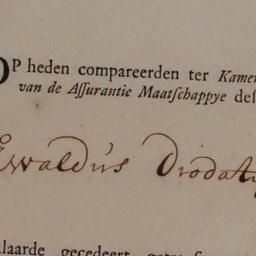 OP heden compareerden ter Kamer
van de Aſſurantie Maatſchappye deſ
Ewaldus Diodaty
laarde gecedeert